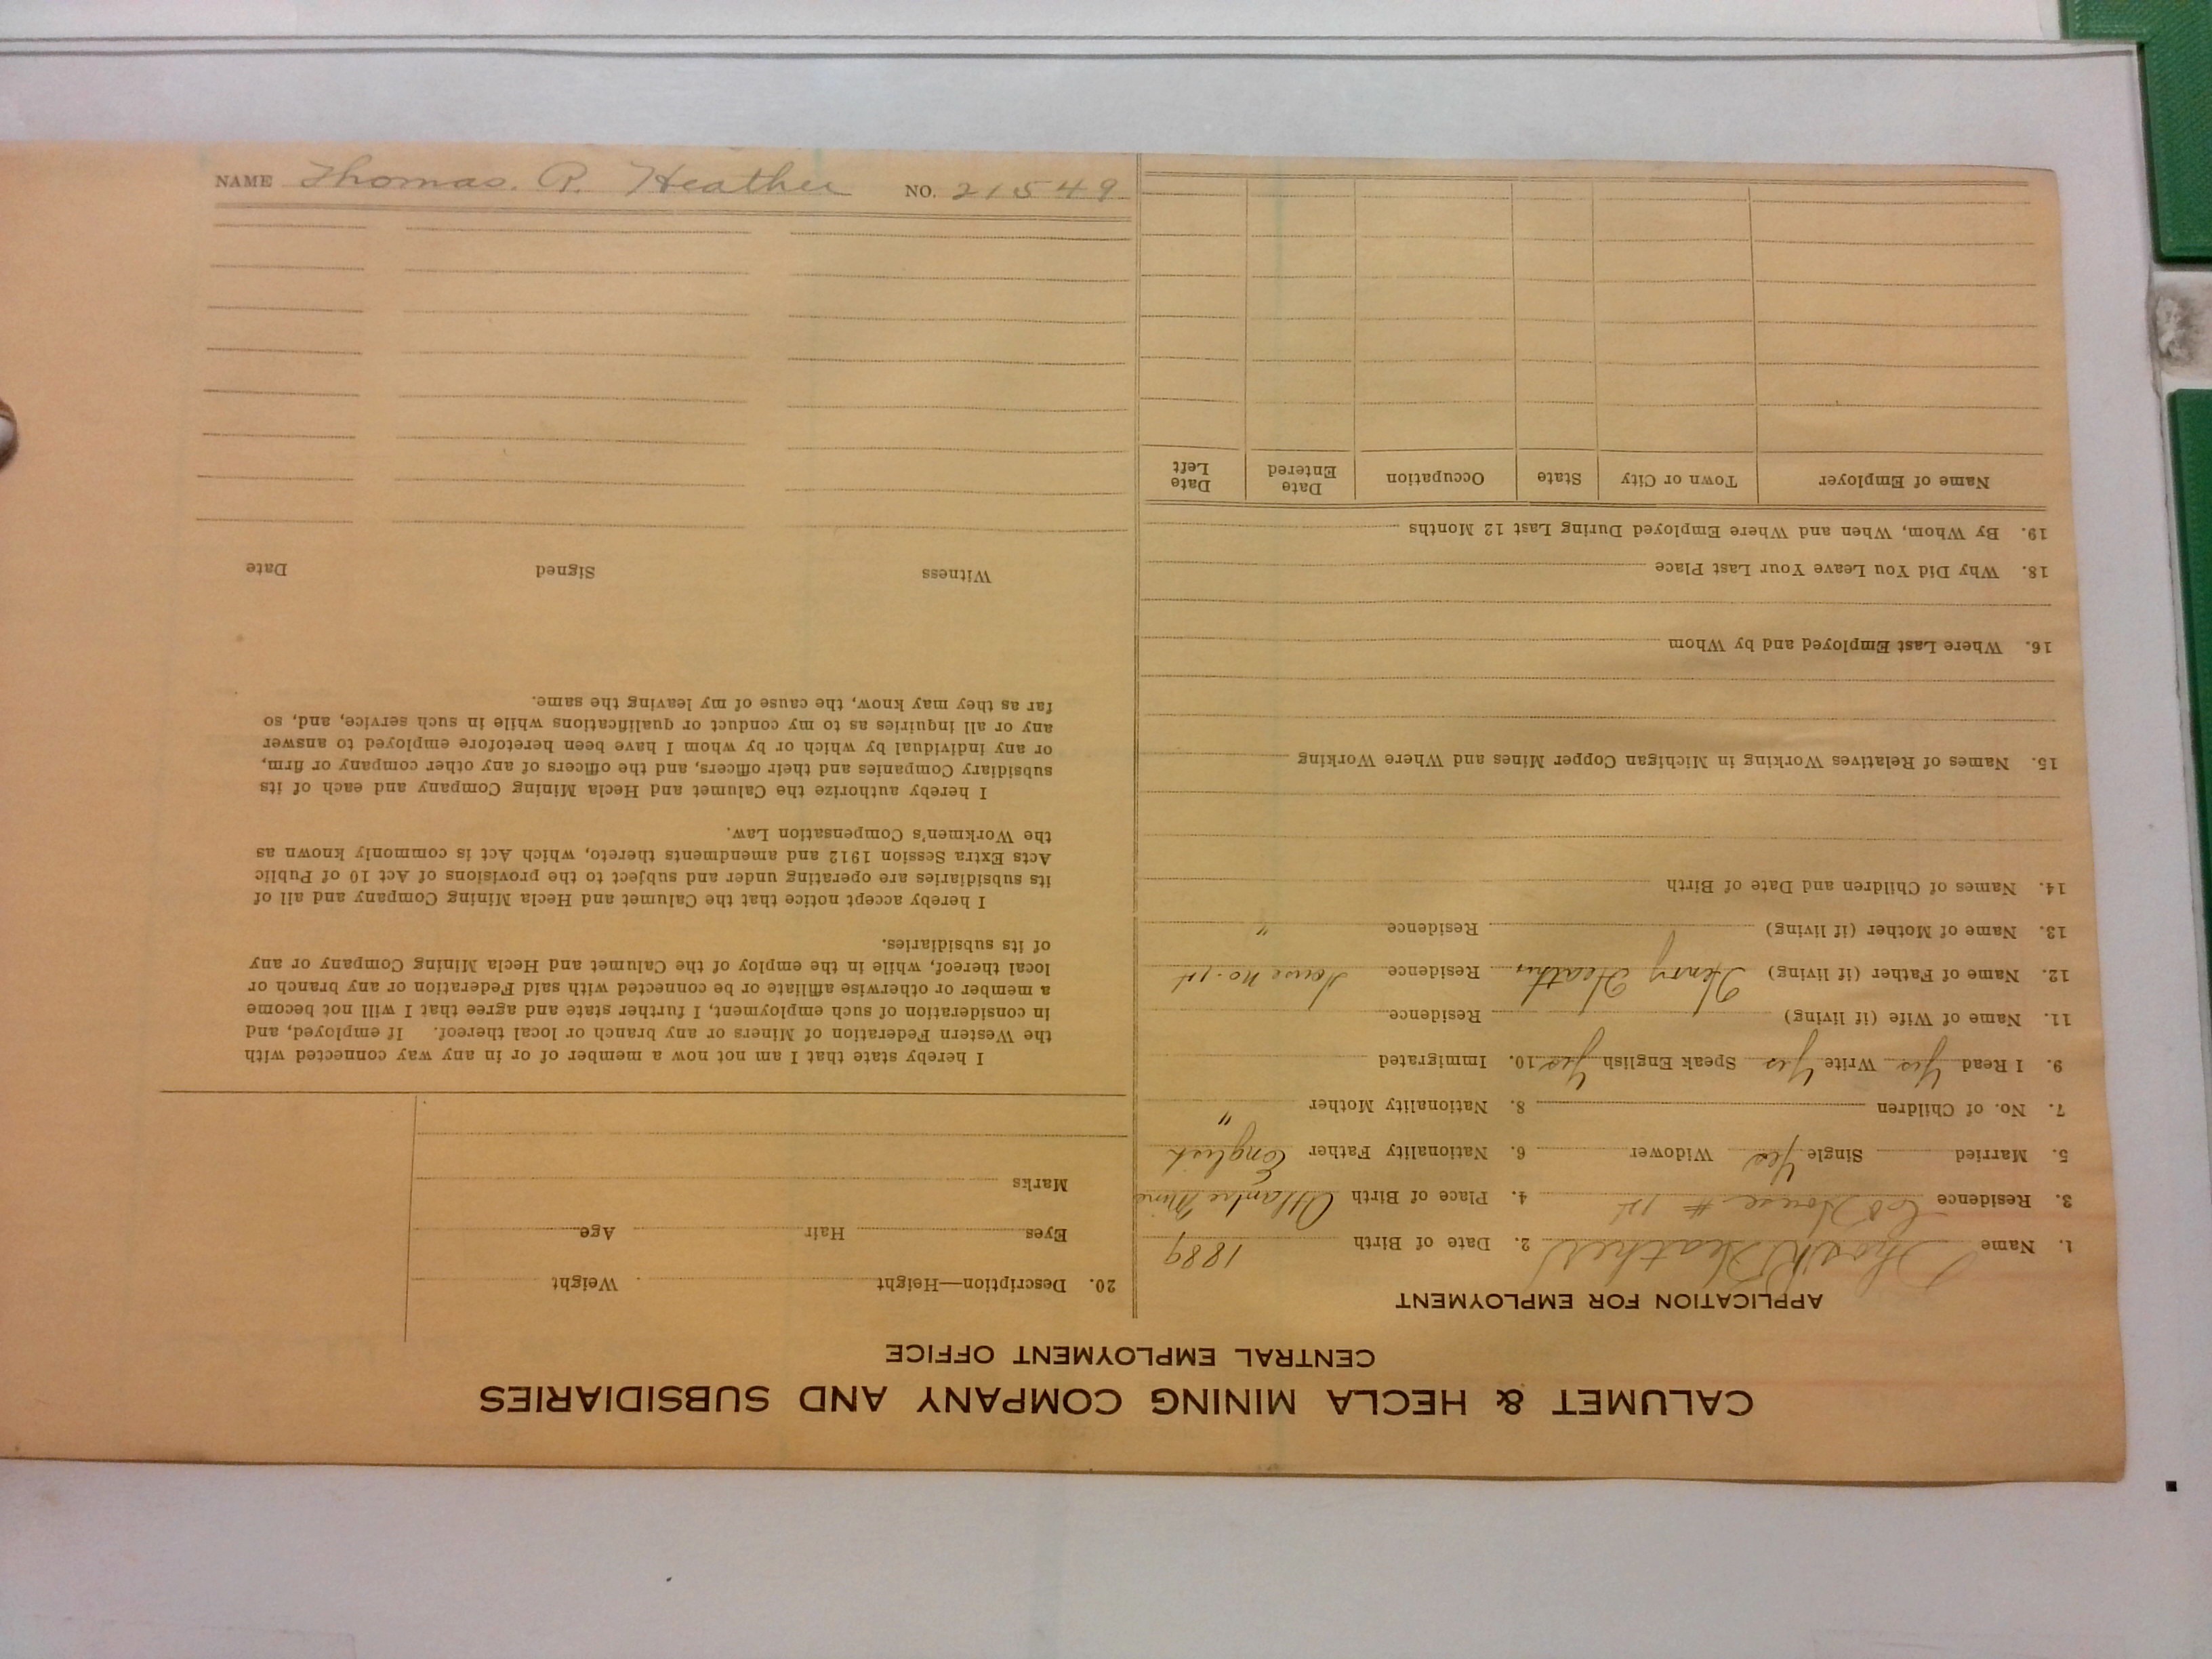 CALUMET & HECLA MINING COMPANY AND SUBSIDIARIES
CENTRAL EMPLOYMENT OFFICE
APPLICATION FOR EMPLOYMENT
1. Name Thos R Heather 2. Date of Birth 1889
3. Residence Co House # 2. 4. Place of Birth Atlantic Mine
5. Married Single Yes Widower 6. Nationality Father English
7. No. of Children 8. Nationality Mother "
9. I Read Yes Write Yes Speak English Yes 10. Immigrated
11. Name of Wife (if living) Residence
12. Name of Father (if living) Henry Heather Residence House no.
13. Name of Mother (if living) Residence "
14. Names of Children and Date of Birth
15. Names of Relatives Working in Michigan Copper Mines and Where Working
16. Where Last Employed and by Whom
18. Why Did You Leave Your Last Place
19. By Whom, When and Where Employed During Last 12 Months
Name of Employer Town or City State Occupation Date Entered Date Left
20. Description—Height Weight
Eyes Hair Age
Marks
I hereby state that I am not now a member of or in any way connected with
the Western Federation of Miners or any branch or local thereof. If employed, and
in consideration of such employment, I further state and agree that I will not become
a member or otherwise affiliate or be connected with said Federation or any branch or
local thereof, while in the employ of the Calumet and Hecla Mining Company or any
of its subsidiaries.
I hereby accept notice that the Calumet and Hecla Mining Company and all of
its subsidiaries are operating under and subject to the provisions of Act 10 of Public
Acts Extra Session 1912 and amendments thereto, which Act is commonly known as
the Workmen's Compensation Law.
I hereby authorize the Calumet and Hecla Mining Company and each of its
subsidiary Companies and their officers, and the officers of any other company or firm,
or any individual by which or by whom I have been heretofore employed to answer
any or all inquiries as to my conduct or qualifications while in such service, and, so
far as they may know, the cause of my leaving the same.
Witness Signed Date
NAME Thomas. R. Heather NO. 21549